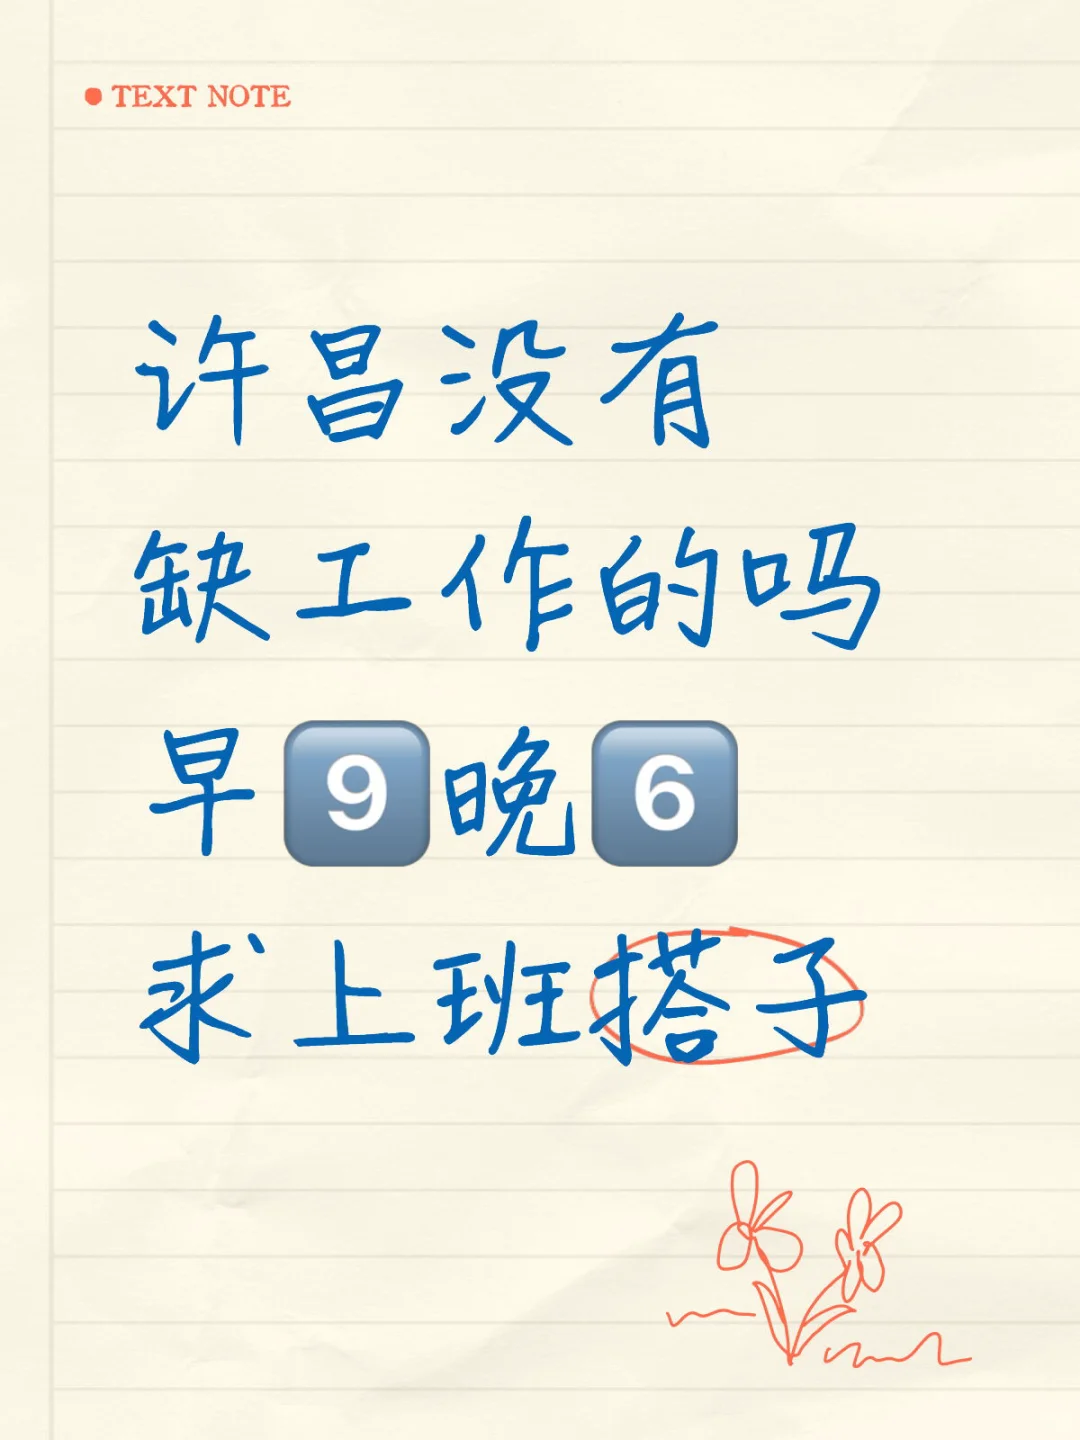 TEXT NOTE
许昌没有
缺工作的吗
早9️⃣晚6️⃣
求上班搭子